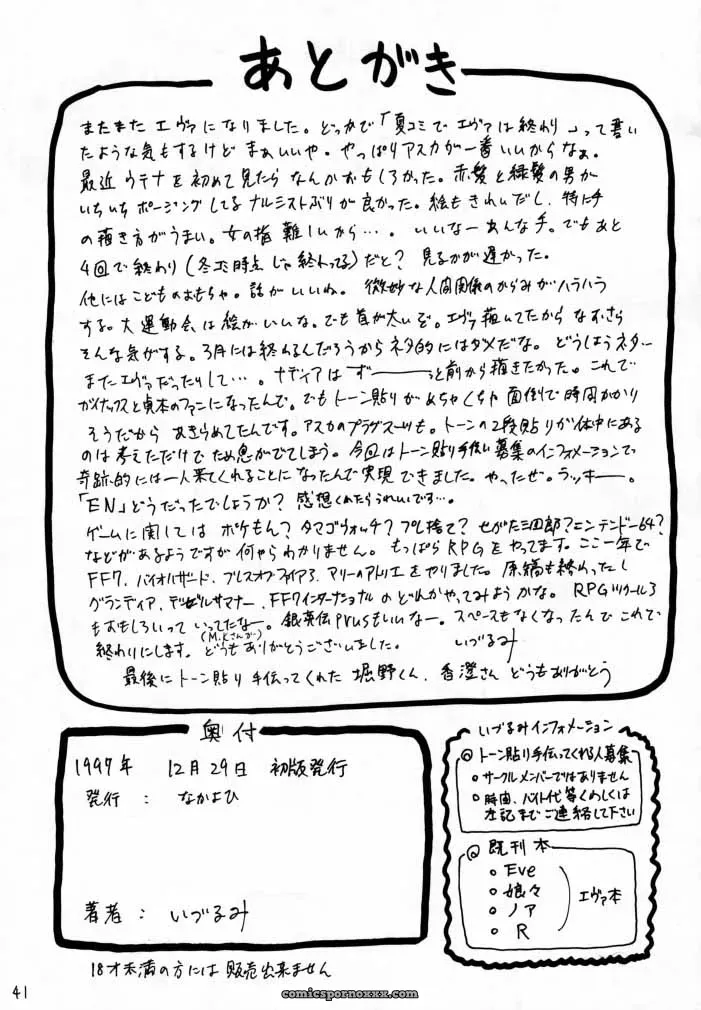 あとがき
またまた エヴァになりました。どっかで「夏コミで エヴァは終わり」って書い
たような気もするけど まぁいいや。やっぱりアスカが一番いいからなぁ。
最近 ウテナを初めて見たら なんかおもしろかった。赤髪と緑髪の男が
いちいち ポージングしてる ナルシストぶりが良かった。絵もきれいだし、特に手
の描き方がうまい。女の指難しいから…。いいなーあんな手。でもあと
4回で終わり(冬コミ時点じゃ終わってる)だと? 見るのが遅かった。
他にはこどものおもちゃ。話がいいね。微妙な人間関係のからみがハラハラ
する。大運動会は絵がいいな。でも首が太いぞ。エヴァ描いてたからなおさら
そんな気がする。3月には終わるんだろうからネタ的にはダメだな。どうしようネタ…
またエヴァだったりして…。ナディアはずーーーっと前から描きたかった。これで
ガイナックスと貞本のファンになったんで。でもトーン貼りがめちゃくちゃ面倒で時間かかり
そうだから あきらめてたんです。アスカのプラグスーツも。トーンの2段貼りが体中にある
のは考えただけでため息がでてしまう。今回はトーン貼り手伝い募集のインフォメーションで
奇跡的には一人来てくれることになったんで実現できました。やったぜ。ラッキー。
「EN」どうだったでしょうか? 感想くれたらうれしいです…。
ゲームに関しては ポケもん? タマゴウォッチ? プレ捨て? せがた三四郎? ニンテンドー64?
などがあるようですが何やらわかりません。もっぱらRPGをやってます。ここ一年で
FF7、バイオハザード、ブレスオブファイア3、マリーのアトリエをやりました。原稿も終わったし
グランディア、デビルサマナー、FF7インターナショナルのどれかやってみようかな。RPGツクール3
もおもしろいって いってたなー。銀英伝Prusもいいなー。スペースもなくなったんで これで
(M.Kさんが)
終わりにします。どうもありがとうございました。 いづるみ
最後にトーン貼り手伝ってくれた 堀野くん、香澄さん どうもありがとう
奥付
1997年 12月29日 初版発行
発行 : なかよひ
著者 : いづるみ
18才未満の方には 販売出来ません
いづるみインフォメーション
トーン貼り手伝ってくれる人募集
サークルメンバーではありません
時間、バイト代等くわしくは
左記までご連絡して下さい
既刊本
Eve
娘々
ノア
R
エヴァ本
41
comicspornoxxx.com